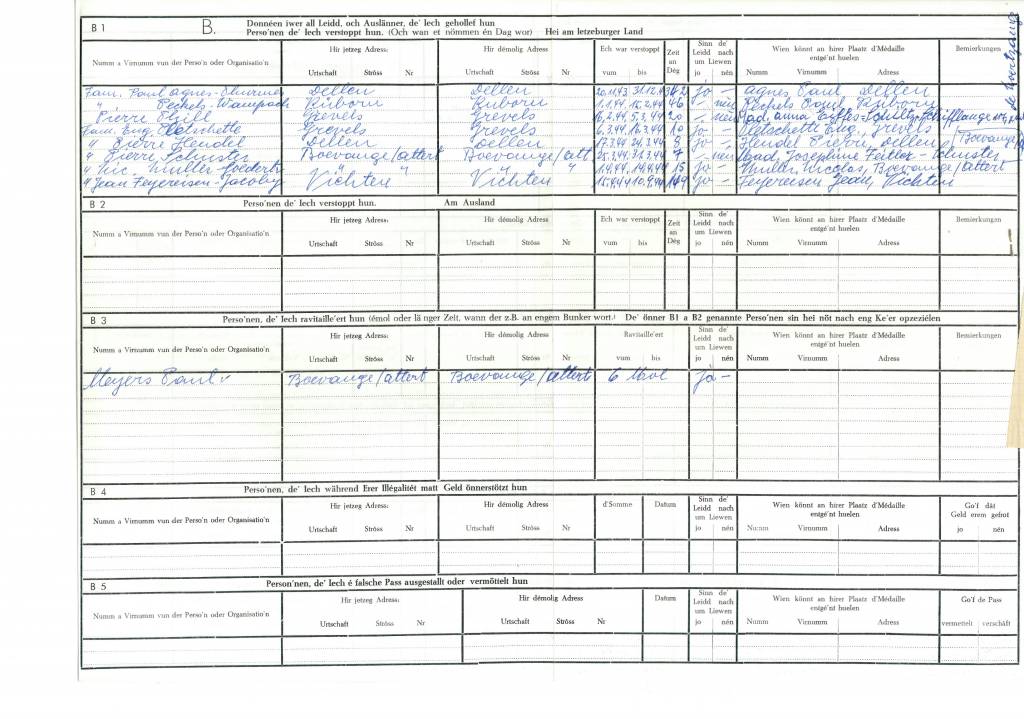 B 1 B. Donnéen iwer all Leidd, och Auslänner, de' Iech gehollef hun
Perso'nen de' Iech verstoppt hun. (Och wan et nömmen én Dag wor) Hei am letzeburger Land
Numm a Virnumm vun der Perso'n oder Organisatio'n Hir jetzeg Adress: Hir démolig Adress: Ech war verstoppt Zeit an Dég Sinn de' Leidd nach um Liewen Wien könnt an hirer Plaatz d'Médaille entgé'nt huelen Bemierkungen
Urtschaft Ströss Nr Urtschaft Ströss Nr vum bis jo nén Numm Virnumm Adress
Fam. Paul Agnes Dellen Dellen 20.11.43 31.12.43 42 jo – Agnes Paul Dellen
" Pechels-Wampach Kuborn Kuborn 1.1.44 15.2.44 46 – nén Pechels Paul, Kuborn
Pierre Thill Grevels Grevels 16.2.44 5.3.44 20 – nén Mad. Anna Eiffes-Schiltz, Schifflange
Fam. Eug. Pletschette Grevels Grevels 6.3.44 16.3.44 10 jo – Pletschette Eug., Grevels
" Pierre Hendel Dellen Dellen 17.3.44 24.3.44 8 jo – Hendel Pierre, Dellen
" Pierre Schuster Boevange/Attert Boevange/Att 25.3.44 31.3.44 7 – nén Mad. Josephine Feitler-Schuster Boevange
" Nic. Muller " " " 1.4.44 14.4.44 15 jo – Muller Nicolas, Boevange/Attert
" Jean Feyereisen-Jacoby Vichten Vichten 15.4.44 10.9.44 149 jo – Feyereisen Jean, Vichten
B 2 Perso'nen de' Iech verstoppt hun. Am Ausland
Numm a Virnumm vun der Perso'n oder Organisatio'n Hir jetzeg Adress: Hir démolig Adress: Ech war verstoppt Zeit an Dég Sinn de' Leidd nach um Liewen Wien könnt an hirer Plaatz d'Médaille entgé'nt huelen Bemierkungen
Urtschaft Ströss Nr Urtschaft Ströss Nr vum bis jo nén Numm Virnumm Adress
B 3 Perso'nen, de' Iech ravitaille'ert hun (émol oder lä nger Zeit, wann der z.B. an engem Bunker wort.) De' önner B1 a B2 genannte Perso'nen sin hei nöt nach eng Ke'er opzezièlen
Numm a Virnumm vun der Perso'n oder Organisatio'n Hir jetzeg Adress: Hir démolig Adress: Ravitaille'ert Sinn de' Leidd nach um Liewen Wien könnt an hirer Plaatz d'Médaille entgé'nt huelen Bemierkungen
Urtschaft Ströss Nr Urtschaft Ströss Nr vum bis jo nén Numm Virnumm Adress
Meyers Paul Boevange/Attert Boevange/Attert 6 Mol jo –
B 4 Perso'nen, de' Iech während Erer Illégalitét matt Geld önnerstötzt hun
Numm a Virnumm vun der Perso'n oder Organisatio'n Hir jetzeg Adress: Hir démolig Adress: d'Somme Datum Sinn de' Leidd nach um Liewen Wien könnt an hirer Plaatz d'Médaille entgé'nt huelen Go'f dât Geld erem gefrot
Urtschaft Ströss Nr Urtschaft Ströss Nr jo nén Numm Virnumm Adress jo nén
B 5 Person'nen, de' Iech é falsche Pass ausgestallt oder vermöttelt hun
Numm a Virnumm vun der Perso'n oder Organisatio'n Hir jetzeg Adress: Hir démolig Adress Datum Sinn de' Leidd nach um Liewen Wien könnt an hirer Plaatz d'Médaille entgé'nt huelen Go'f de Pass
Urtschaft Ströss Nr Urtschaft Ströss Nr jo nén Numm Virnumm Adress vermettelt verschäft